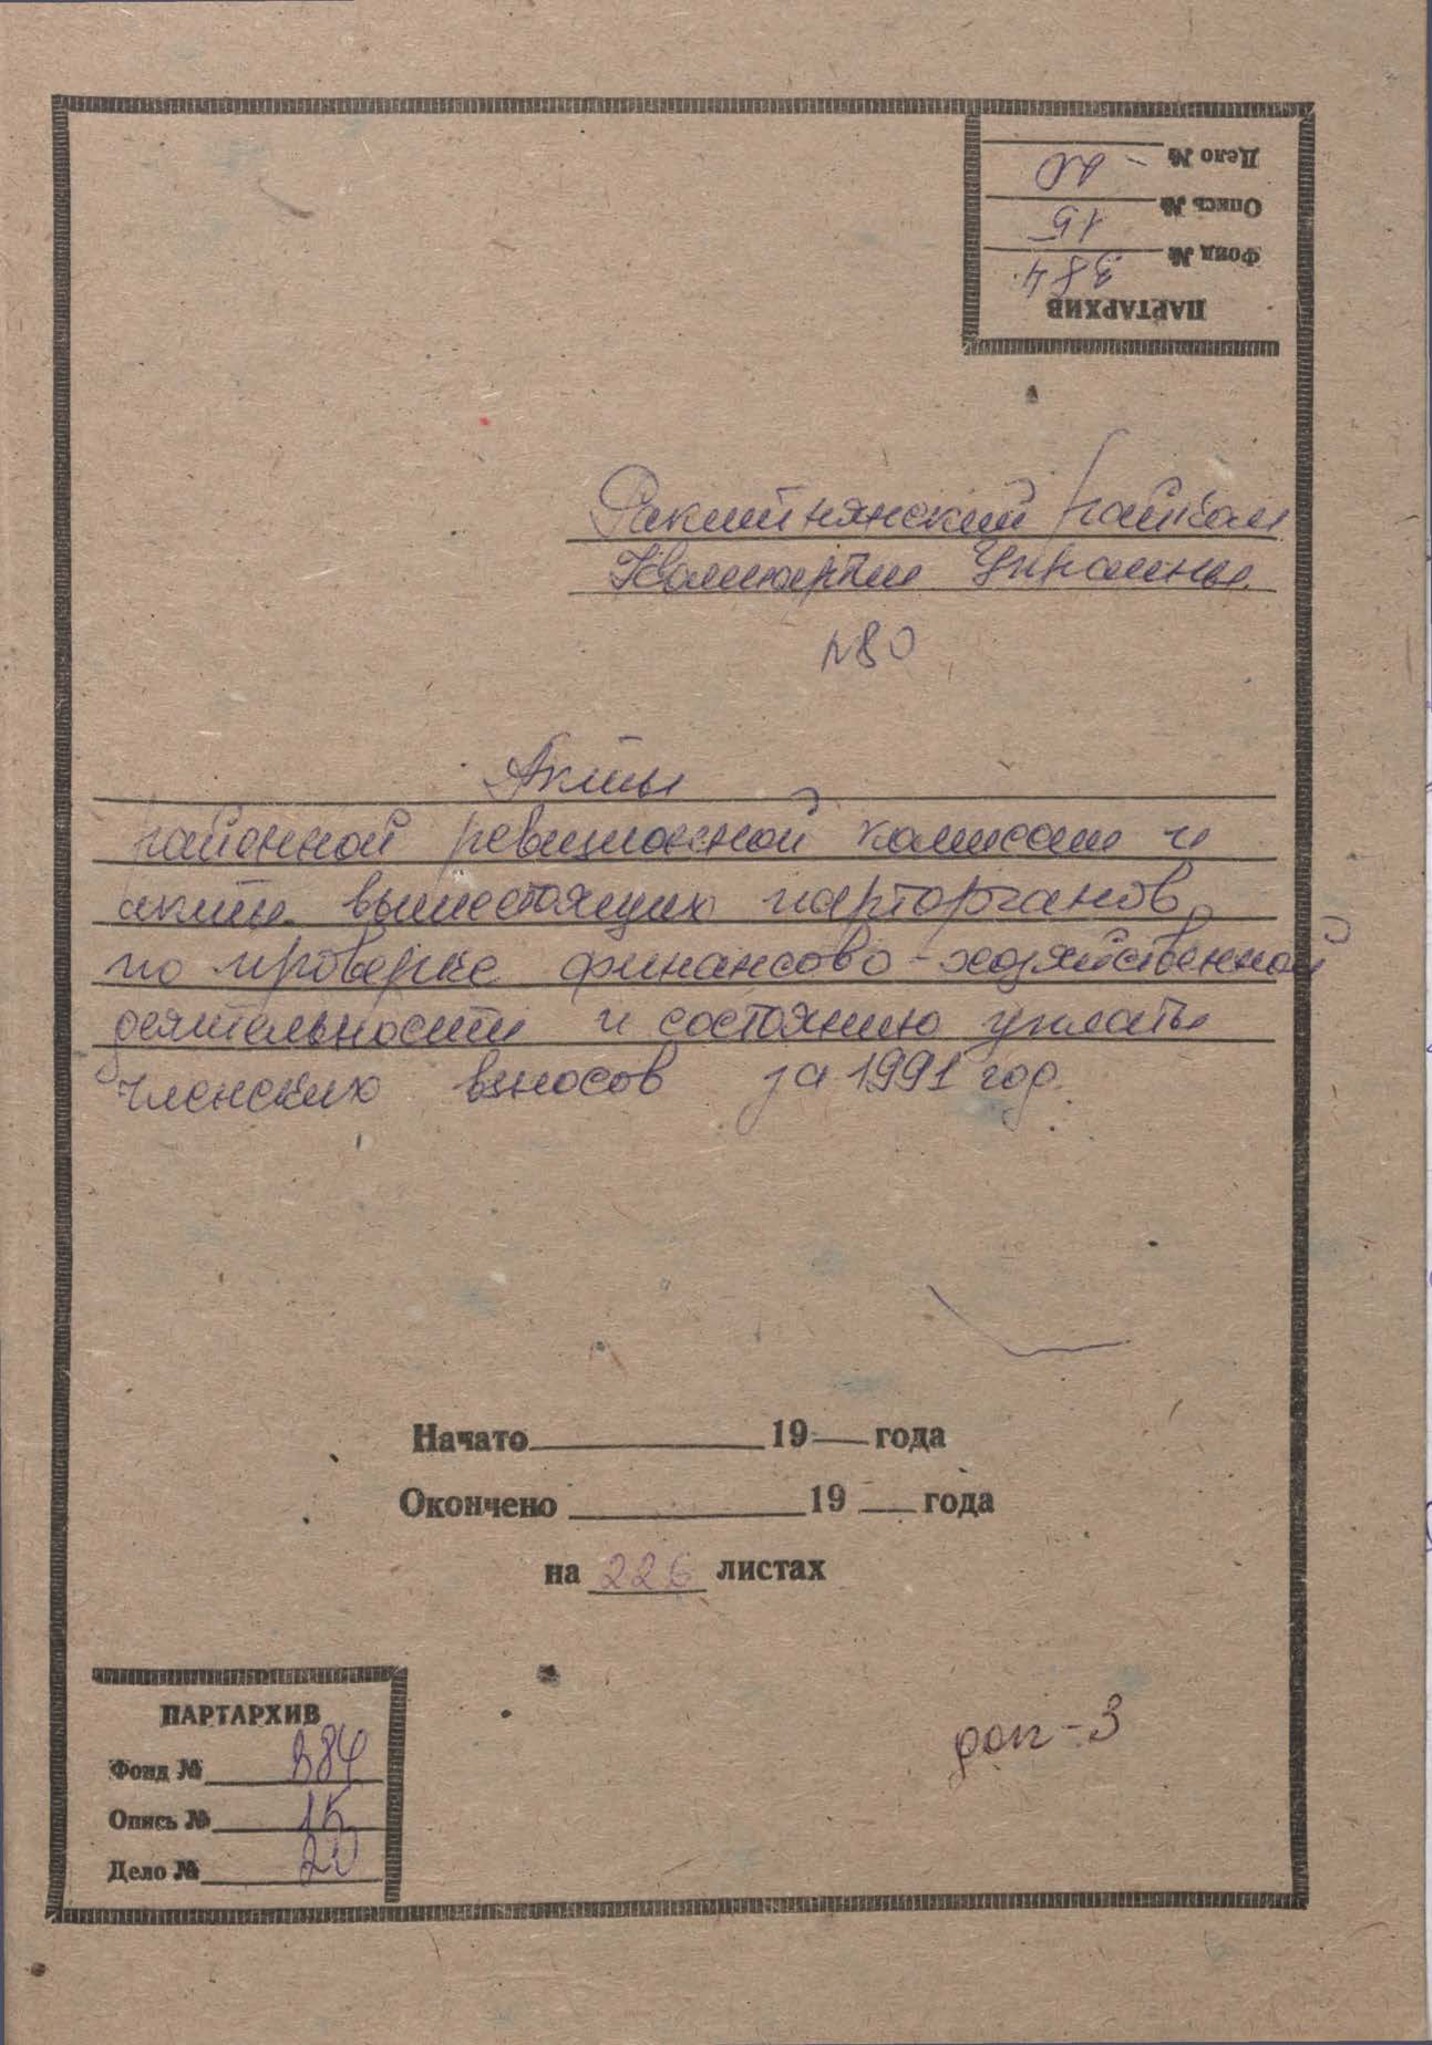 ПАРТАРХИВ
Фонд № 384
Опись № 15
Дело № 20
Ракитнянский райком
Компартии Украины
Акты
районной ревизионной комиссии и
акты вышестоящих парторганов
по проверке финансово-хозяйственной
деятельности и состоянию уплаты
членских взносов за 1991 год.
Начато 19 года
Окончено 19 года
на 226 листах
ПАРТАРХИВ
Фонд № 384
Опись № 15
Дело № 20
доп-3